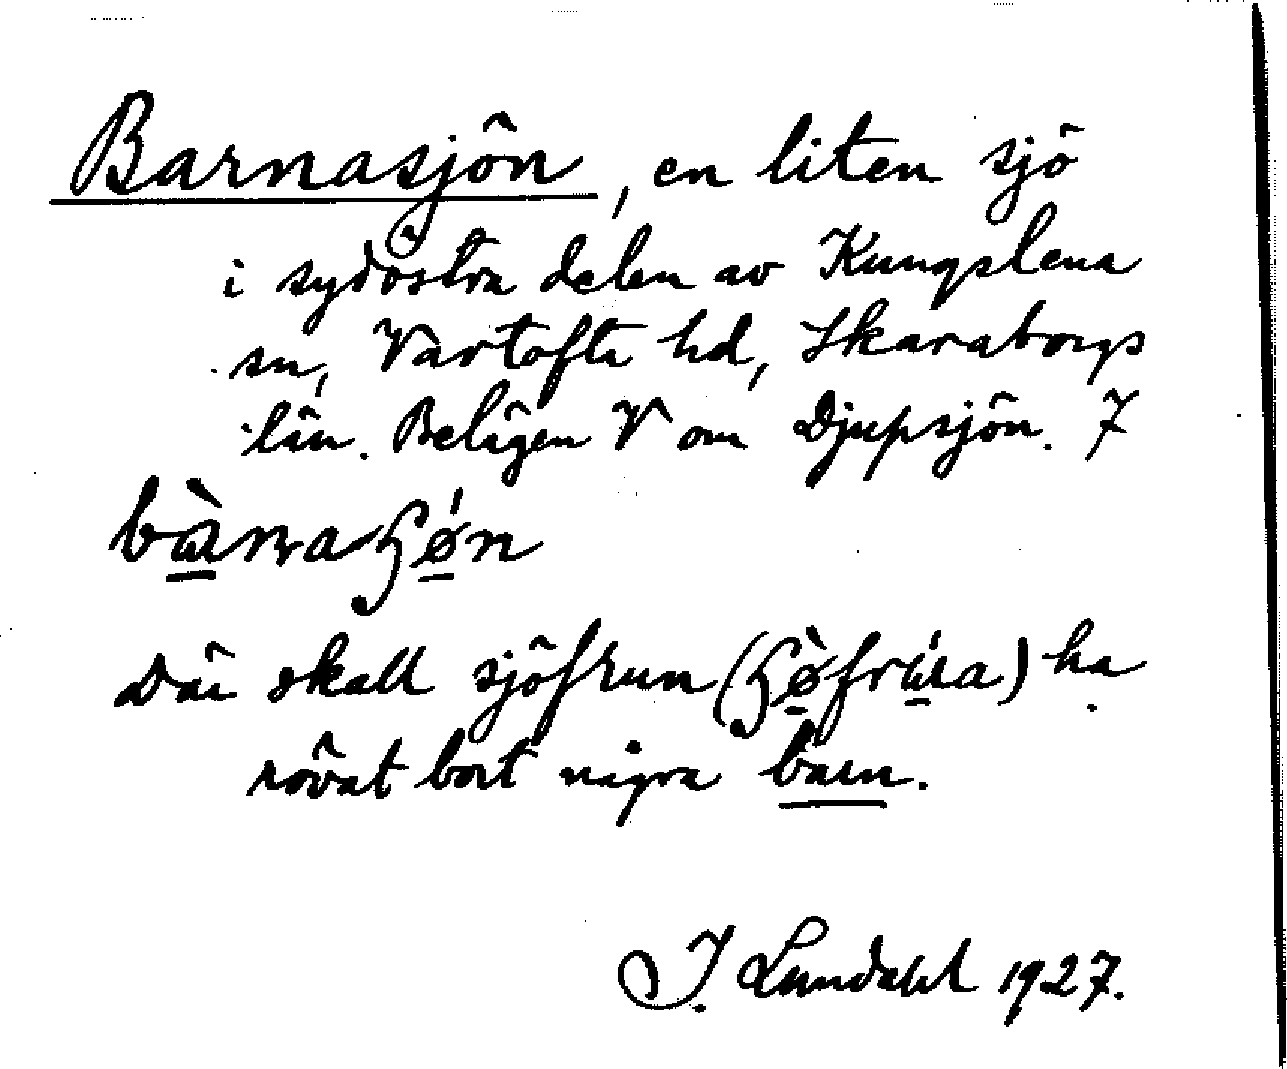 Barnasjön, en liten sjö
i sydöstra delen av Kungslena
sn, Vartofta hd, Skaraborgs
län. Belägen V om Djupsjön. 7
Där skall sjöfrun ha
rövat bort några barn.
I. Lundahl 1927.